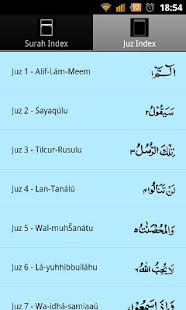 18:54
Surah Index
Juz Index
Juz 1 - Alif-Lám-Meem الٓمّٓ
Juz 2 - Sayaqúlu سَيَقُوْلُ
Juz 3 - Tilcur-Rusulu تِلْكَ الرُّسُلُ
Juz 4 - Lan-Tanálú لَنْ تَنَالُوا
Juz 5 - Wal-muhŠanátu وَالْمُحْصَنٰتُ
Juz 6 - Lá-yuhhibbulláhu لَا يُحِبُّ اللهُ
Juz 7 - Wa-idhá-samiaaú وَاِذَا سَمِعُوْا